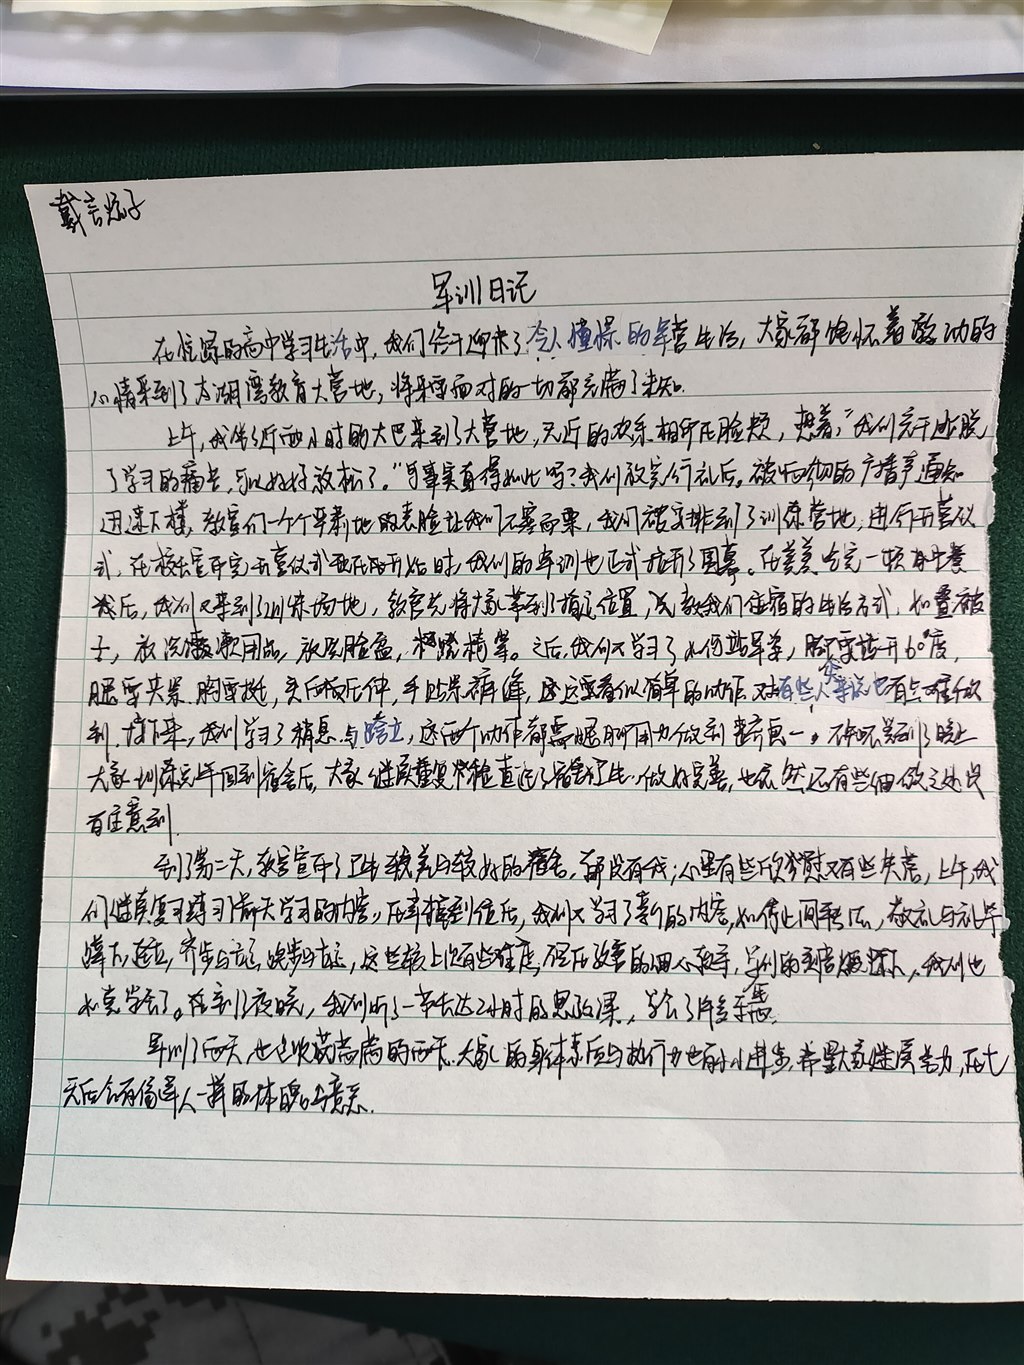 军训日记
在忙碌的高中学习生活中，我们终于迎来了令人憧憬的军营生活，大家都饱怀着激动的
心情来到了太湖湾教育大营地，将来要面对的一切都充满了未知。
上午，我坐了近两小时的大巴来到了大营地，无尽的欢乐相印在脸颊，想着，"我们终于逃脱
了学习的痛苦，可以好好放松了。"可事实真得如此吗？我们放完行礼后，被的广播声通知
迅速下楼，教官们一个个严肃地的表脸让我们不寒而栗，我们被安排到了训练营地，进行开营仪
式，在校长宣布完开营仪式现在开始时，我们的军训也正式拉开了围幕。在美美吃完一顿
后，我们又来到了训练场地，教官先将大家带到了指定位置，教我们住宿的生活方式，如叠被
子，放洗漱用品，放洗脸盆，等。之后，我们又学习了如何站军姿，脚要揸开60度，
腿要夹紧，胸要挺，手贴紧裤缝，这些看似简单的动作，对有些人来说也有点难做
到，接下来，我们学习了稍息与跨立，这两个动作都需腿脚用力做到整齐画一。到了晚上
大家训练完毕回到宿舍后，大家继续重复检查宿舍卫生，做好完善，也依然还有些细微之处没
有注意到。
到了第二天，教官宣布了卫生较差与较好的宿舍，都没有我；心里有些欣慰又有些失落，上午，我
们继续复习练习前天学习的内容。在掌握到位后，我们又学习了新的内容，如停止间转法，敬礼与礼毕
蹲下，起立，齐步与立定，跑步与立定，这些较上次有些难度，但在教官的细心教导，我们也
学会了。在到了夜晚，我们听了一节长达2小时的思政课，学会了许多东西。
军训了两天，也是收获满满的两天，大家的身体素质与执行力也有小小进步，希望大家继续努力，在七
天后会有像军人一样的体魄与意志。